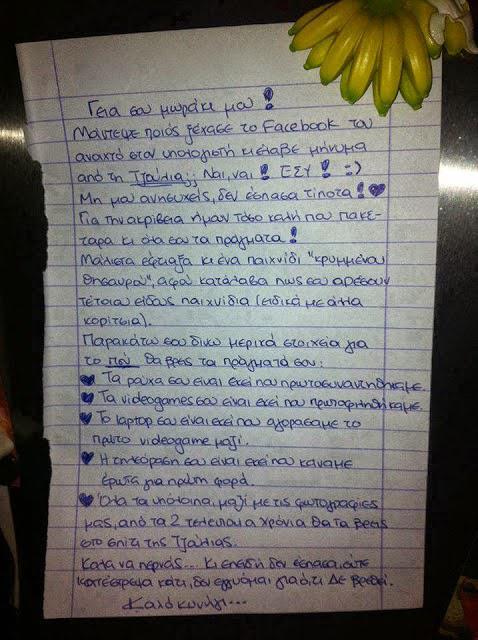 Γεια σου μωράκι μου!
Μάντεψε ποιός ξέχασε το Facebook του
ανοιχτό στον υπολογιστή κι έλαβε μήνυμα
από τη Τζούλια;; Ναι, ναι! ΕΣΥ! :)
Μη μου ανησυχείς, δεν έσπασα τίποτα! ♥
Για την ακρίβεια ήμουν τόσο καλή που πακέ-
ταρα κι όλα σου τα πράγματα!
Μάλιστα έφτιαξα κι ένα παιχνίδι "κρυμμένου
θησαυρού", αφού κατάλαβα πως σου αρέσουν
τέτοιου είδους παιχνίδια (ειδικά με άλλα
κορίτσια).
Παρακάτω σου δίνω μερικά στοιχεία για
το πού θα βρεις τα πράγματά σου:
♥ Τα ρούχα σου είναι εκεί που πρωτοσυναντηθήκαμε.
♥ Τα videogames σου είναι εκεί που πρωτοφιληθήκαμε.
♥ Το laptop σου είναι εκεί που αγοράσαμε το
πρώτο videogame μαζί.
♥ Η τηλεόραση σου είναι εκεί που κάναμε
έρωτα για πρώτη φορά.
♥ Όλα τα υπόλοιπα, μαζί με τις φωτογραφίες
μας, από τα 2 τελευταία χρόνια θα τα βρεις
στο σπίτι της Τζούλιας.
Καλά να περνάς... Κι επειδή δεν έσπασα, ούτε
κατέστρεψα κάτι, δεν εγγυώμαι για ό,τι Δε βρεθεί.
Καλό κυνήγι...